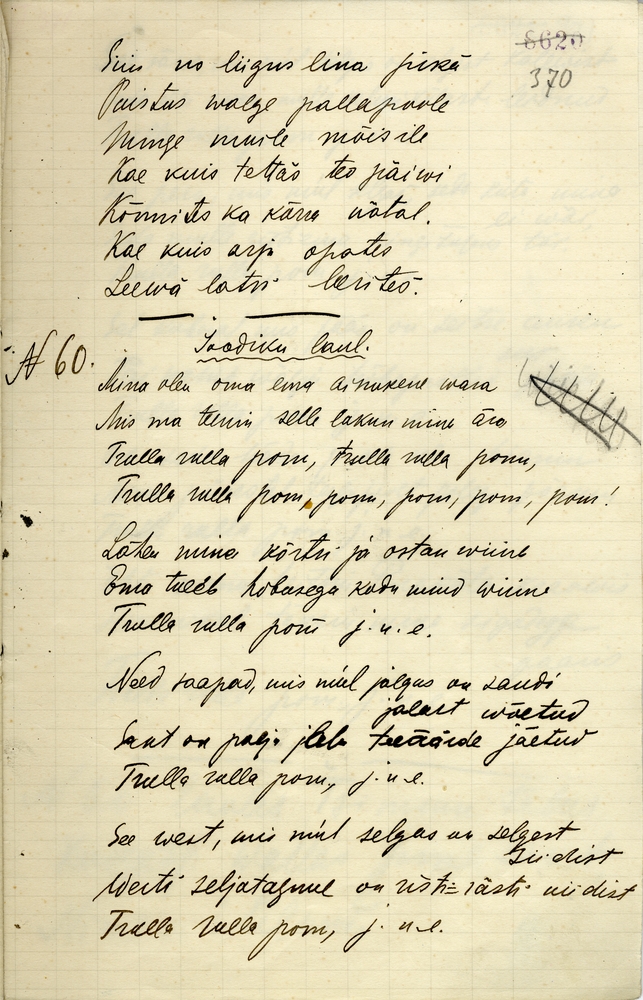 8620
370
Siis no liigus lina pikä
Paistus walge pallapoole
Minge muile mõisile
Kae kuis tettäs teo päiwi
Kõnnites ka kõrra nätal.
Kae kuis arju opates
Leewä latsi leerites.
N 60.
Joodiku laul.
Mina olen oma ema ainukene wara
Mis ma teenin selle lakun mina ära
Trulla rulla pom, trulla rulla pom,
Trulla rulla pom, pom, pom, pom, pom!
Lähen mina kõrtsi ja ostan wiina
Ema tuleb hobusega kodu mind wiima
Trulla rulla pom j. n. e.
Need saapad, mis miul jalgas on sandi
jalast wõetud
Sant on palja jalu teeäärde jäetud
Trulla rulla pom, j. n. e.
See west, mis miul selgas on selgest
Siidist
Westi seljatagune on risti=rästi niidist
Trulla rulla pom, j. n. e.